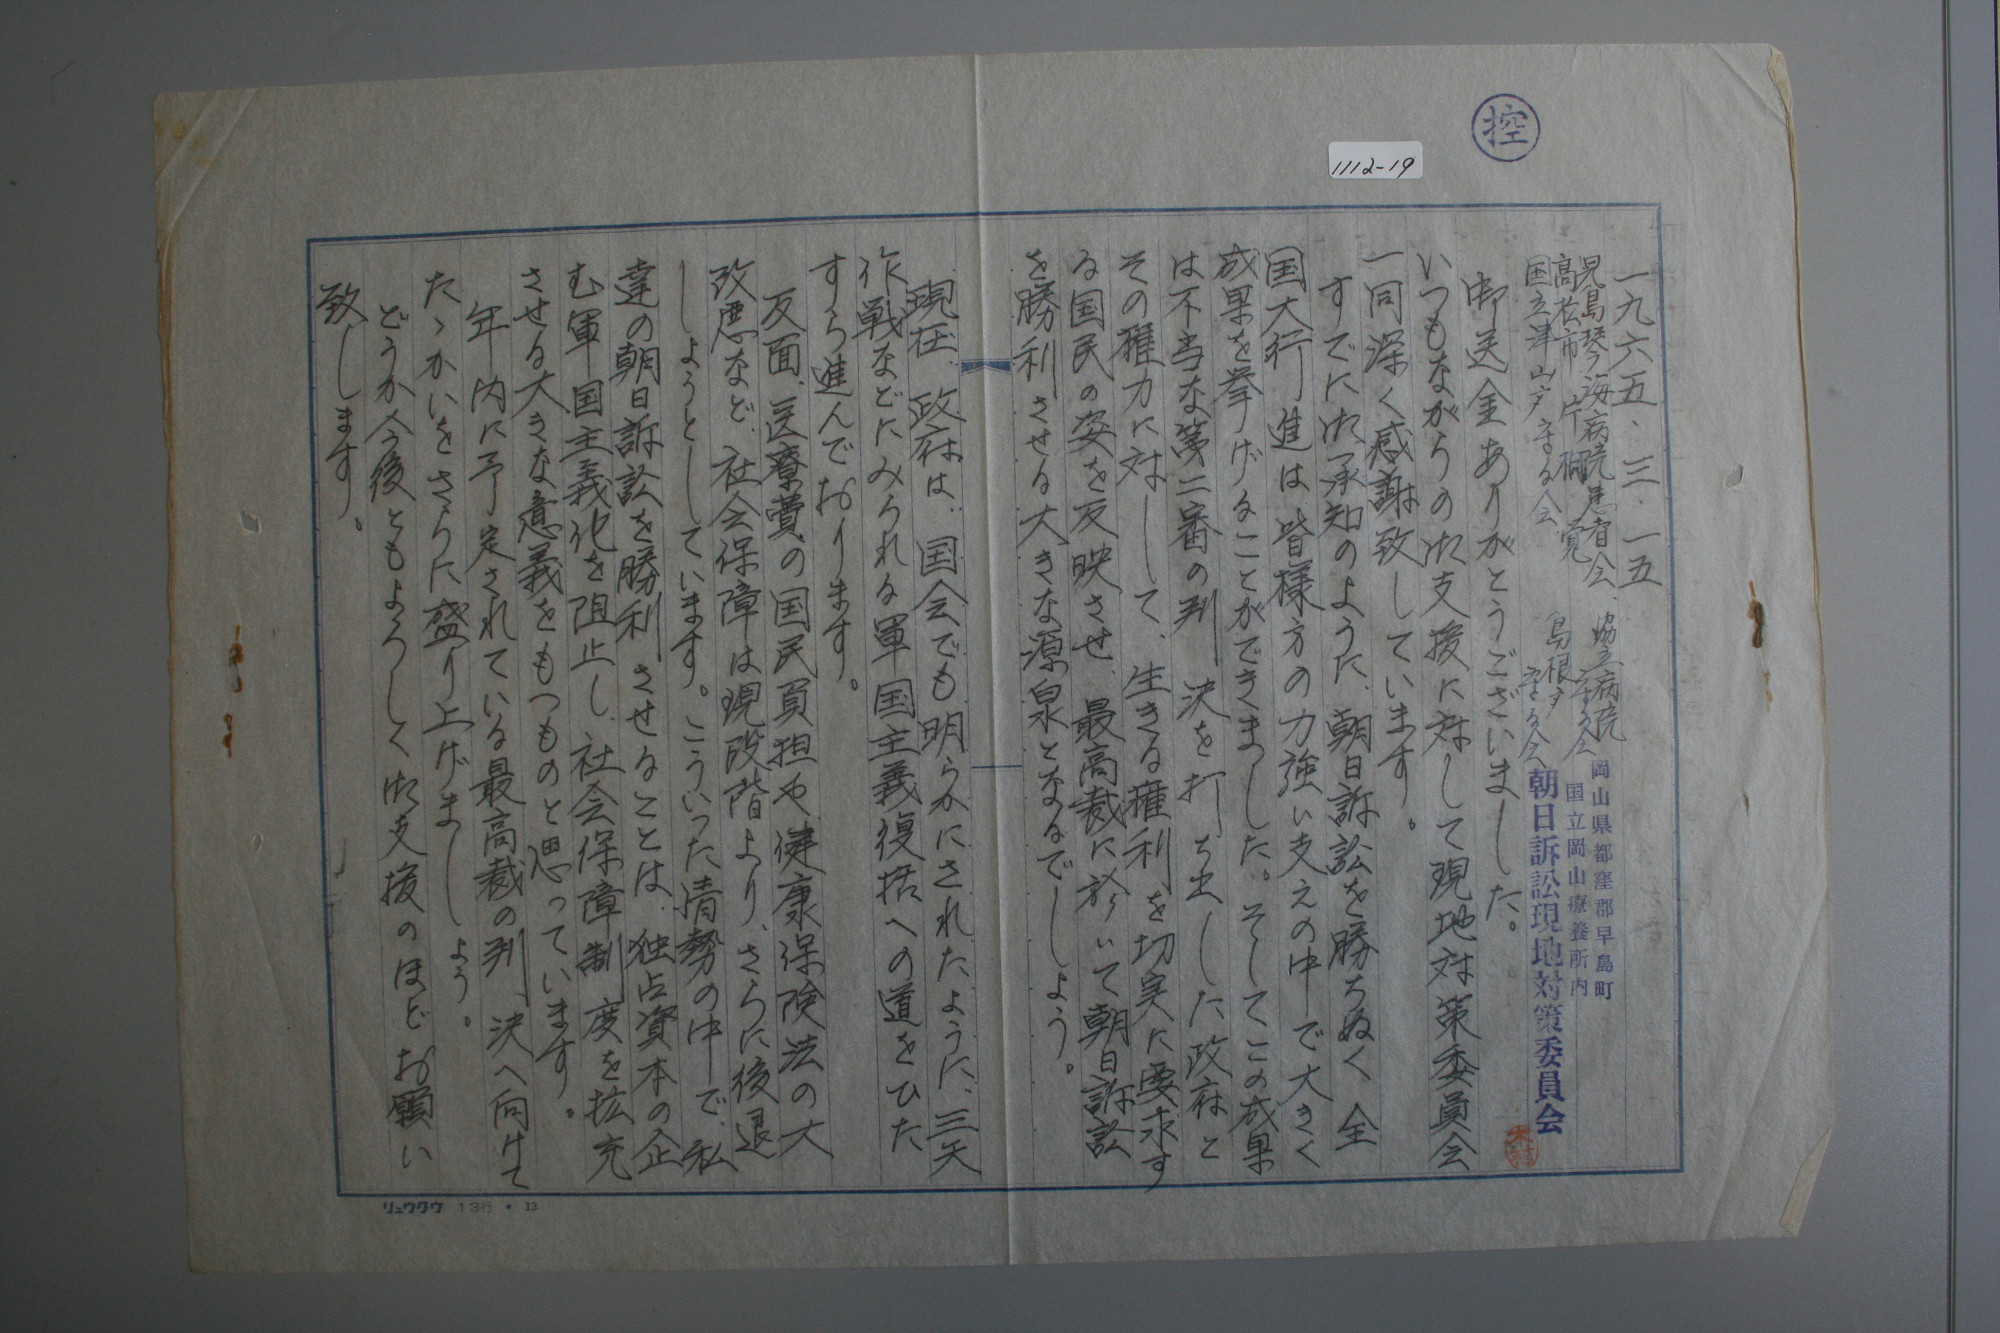 控
1112-19
一九六五、三、一五
児島琴海病院患者会、協立病院守る会
高松市 片桐 覚 島根〃守る会
国立津山〃守る会
岡山県都窪郡早島町
国立岡山療養所内
朝日訴訟現地対策委員会
御送金ありがとうございました。
いつもながらの御支援に対して現地対策委員会
一同深く感謝致しています。
すでに御承知のように、朝日訴訟を勝ちぬく全
国大行進は皆様方の力強い支えの中で大きく
成果を挙げることができました。そしてこの成果
は不当な第二審の判決を打ち出した政府と
その権力に対して、生きる権利を切実に要求す
る国民の姿を反映させ、最高裁に於いて朝日訴訟
を勝利させる大きな源泉となるでしょう。
現在、政府は、国会でも明らかにされたように、三矢
作戦などにみられる軍国主義復活への道をひた
すら進んでおります。
反面、医療費の国民負担や健康保険法の大
改悪など、社会保障は現段階より、さらに後退
しようとしています。こういった情勢の中で、私
達の朝日訴訟を勝利させることは、独占資本の企
む軍国主義化を阻止し、社会保障制度を拡充
させる大きな意義をもつものと思っています。
年内に予定されている最高裁の判決へ向けて
たゝかいをさらに盛り上げましょう。
どうか今後ともよろしく御支援のほどお願い
致します。
リュウクウ 13行 • 13